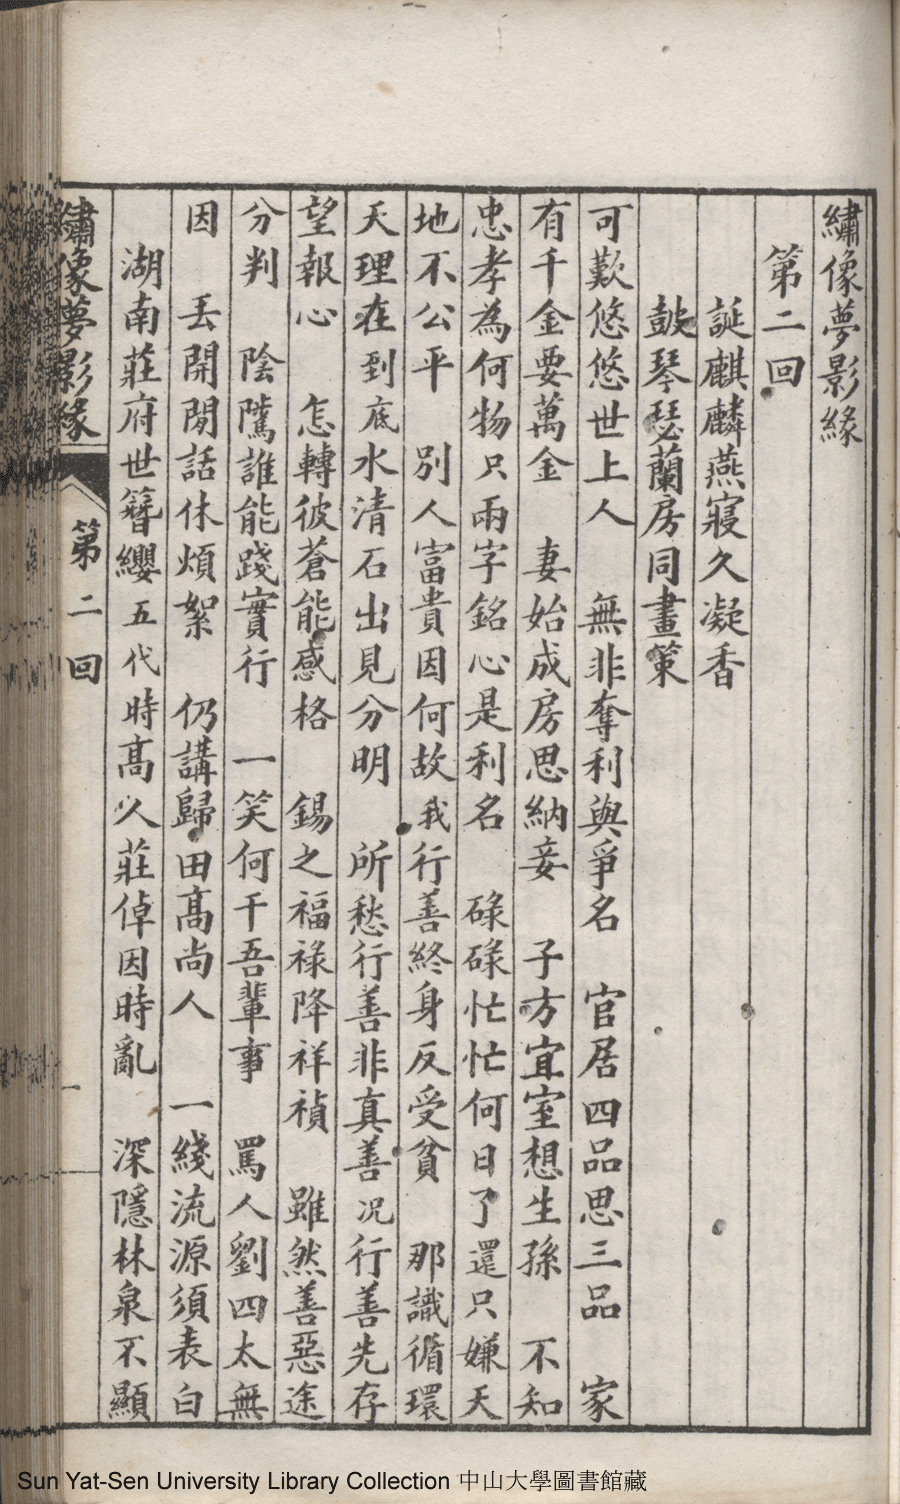 繡像夢影緣
第二回
誕麒麟燕寢久凝香
鼓琴瑟蘭房同畫策
可歎悠悠世上人　無非奪利與爭名　官居四品思三品　家
有千金要萬金　妻始成房思納妾　子方宜室想生孫　不知
忠孝為何物只兩字銘心是利名　碌碌忙忙何日了還只嫌天
地不公平　別人富貴因何故我行善終身反受貧　那識循環
天理在到底水清石出見分明　所愁行善非真善况行善先存
望報心　怎轉彼蒼能感格　錫之福祿降祥禎　雖然善惡途
分判　陰隲誰能踐實行　一笑何干吾輩事　罵人劉四太無
因　丟開閒話休煩絮　仍講歸田髙尚人　一綫流源須表白
湖南莊府世簪纓五代時髙人莊倬因時亂　深隱林泉不顯
繡像夢影緣　第二回　一
Sun Yat-Sen University Library Collection 中山大學圖書館藏